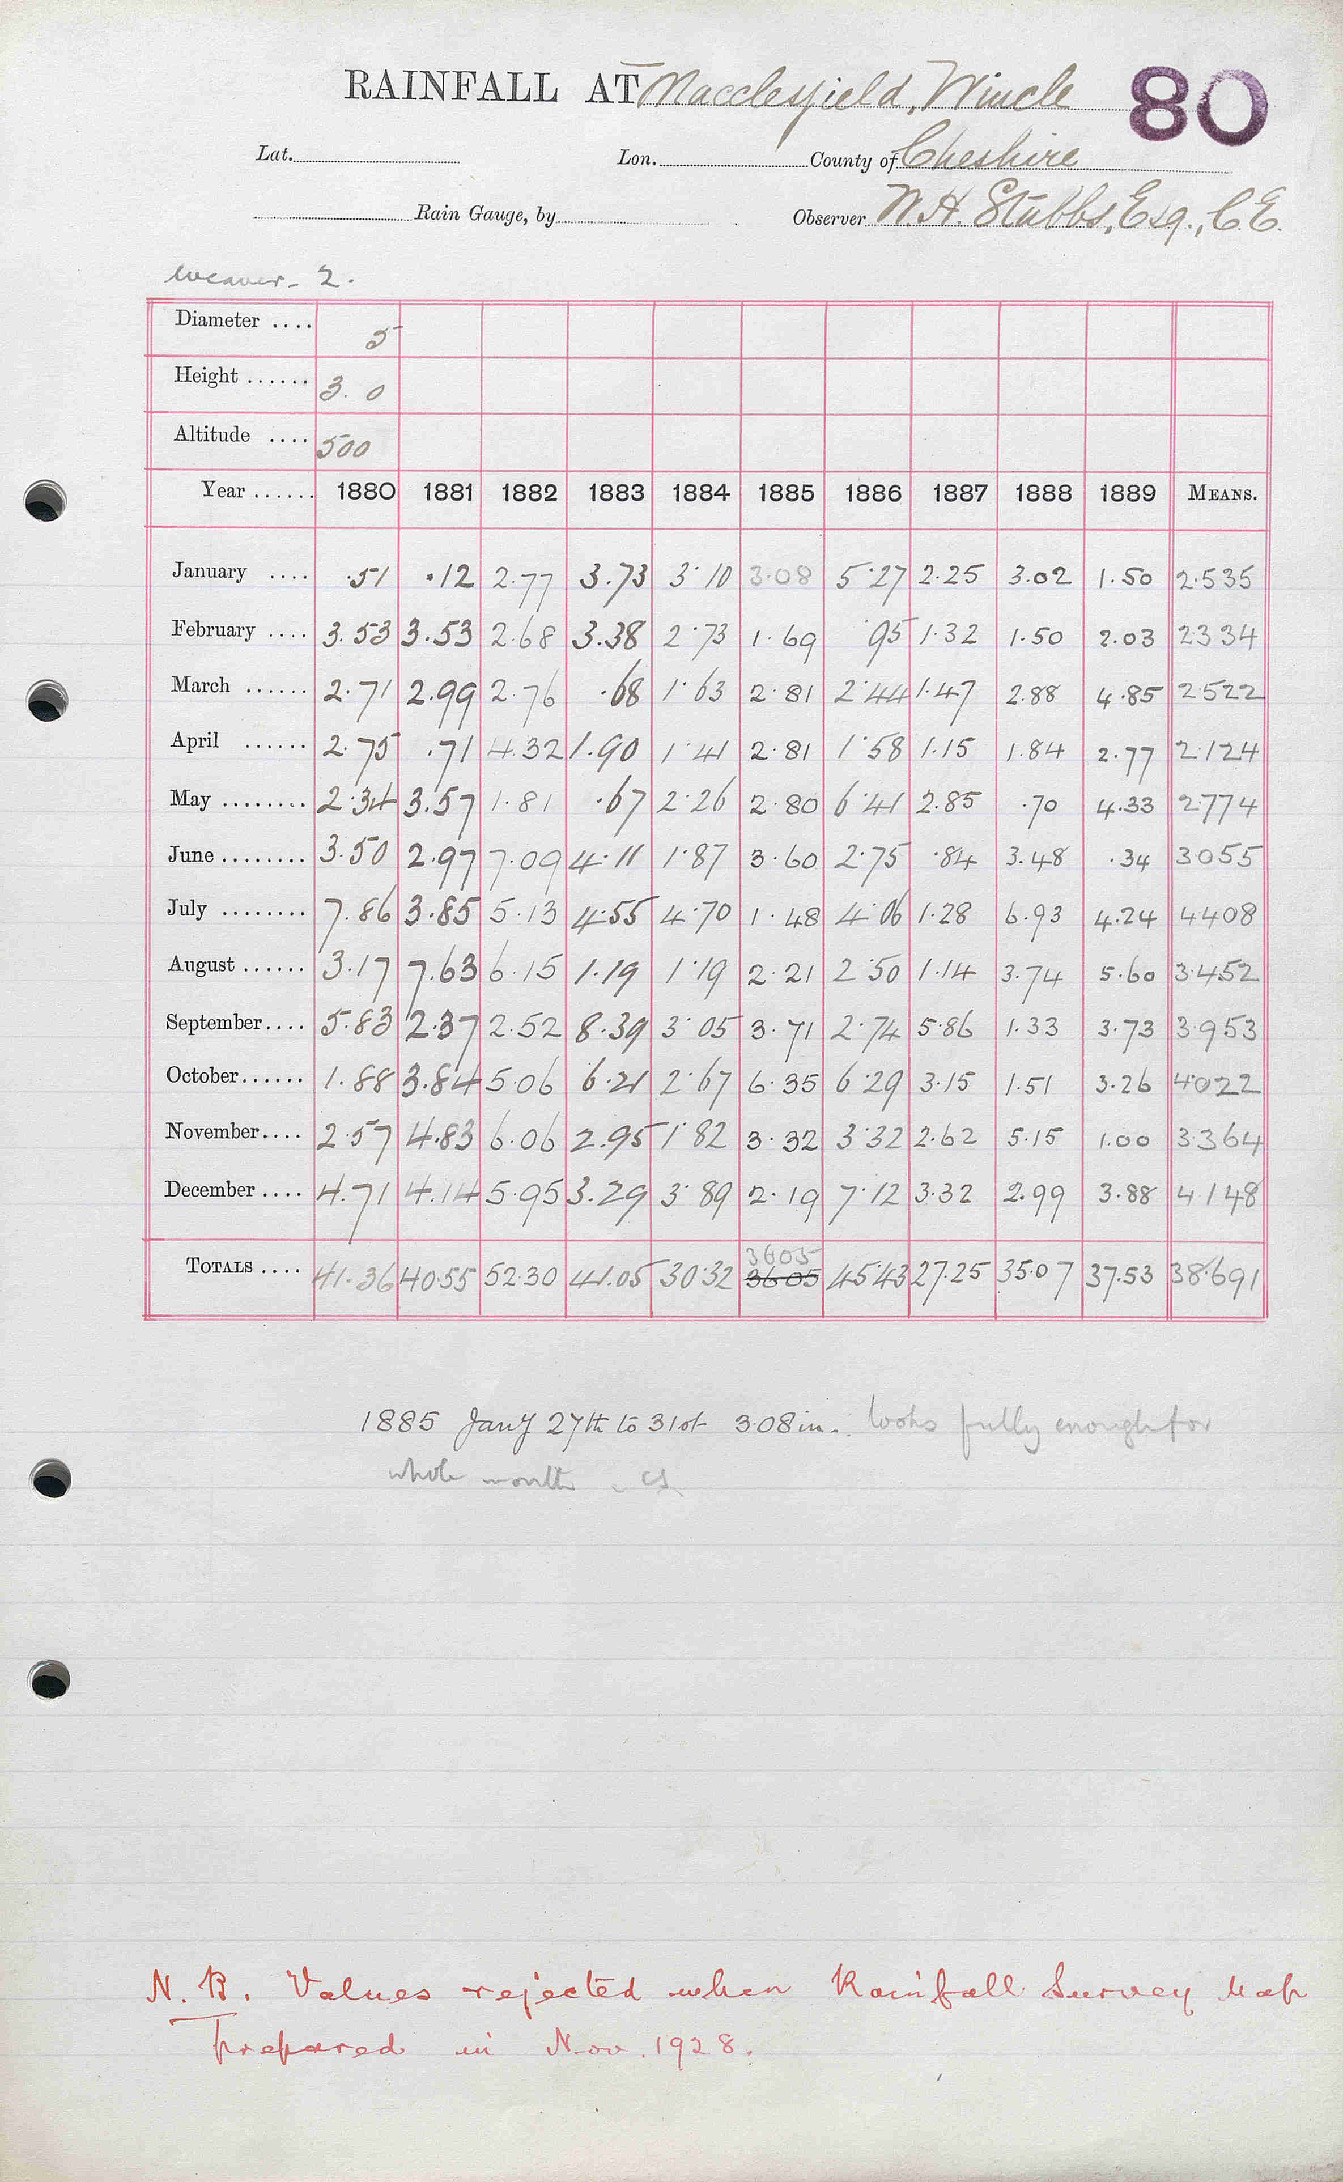 RAINFALL AT Macclesfield, Wincle 80
Lat. Lon. County of Cheshire
Rain Gauge, by Observer W.H. Stubbs, Esq., C.E.
Weaver - 2.
Diameter .... 5
Height ...... 3. 0
Altitude .... 500
Year ...... 1880 1881 1882 1883 1884 1885 1886 1887 1888 1889 MEANS.
January .... .51 .12 2.77 3.73 3.10 3.08 5.27 2.25 3.02 1.50 2.535
February .... 3.53 3.53 2.68 3.38 2.73 1.69 .95 1.32 1.50 2.03 2334
March ...... 2.71 2.99 2.76 .68 1.63 2.81 2.44 1.47 2.88 4.85 2522
April ...... 2.75 .71 4.32 1.90 1.41 2.81 1.58 1.15 1.84 2.77 2.124
May ........ 2.34 3.57 1.81 .67 2.26 2.80 6.41 2.85 .70 4.33 2774
June ........ 3.50 2.97 7.09 4.11 1.87 3.60 2.75 .84 3.48 .34 3055
July ........ 7.86 3.85 5.13 4.55 4.70 1.48 4.06 1.28 6.93 4.24 4408
August ...... 3.17 7.63 6.15 1.19 1.19 2.21 2.50 1.14 3.74 5.60 3.452
September.... 5.83 2.37 2.52 8.39 3.05 3.71 2.74 5.86 1.33 3.73 3.953
October...... 1.88 3.84 5.06 6.21 2.67 6.35 6.29 3.15 1.51 3.26 4.022
November.... 2.57 4.83 6.06 2.95 1.82 3.32 3.32 2.62 5.15 1.00 3.364
December .... 4.71 4.14 5.95 3.29 3.89 2.19 7.12 3.32 2.99 3.88 4.148
3605
TOTALS .... 41.36 40.55 52.30 41.05 30.32 3605 45.43 27.25 35.07 37.53 38.691
1885 Jany 27th to 31st 3.08 in. looks fully enough for
whole month
N.B. Values rejected when Rainfall Survey Map
Prepared in Nov. 1928.